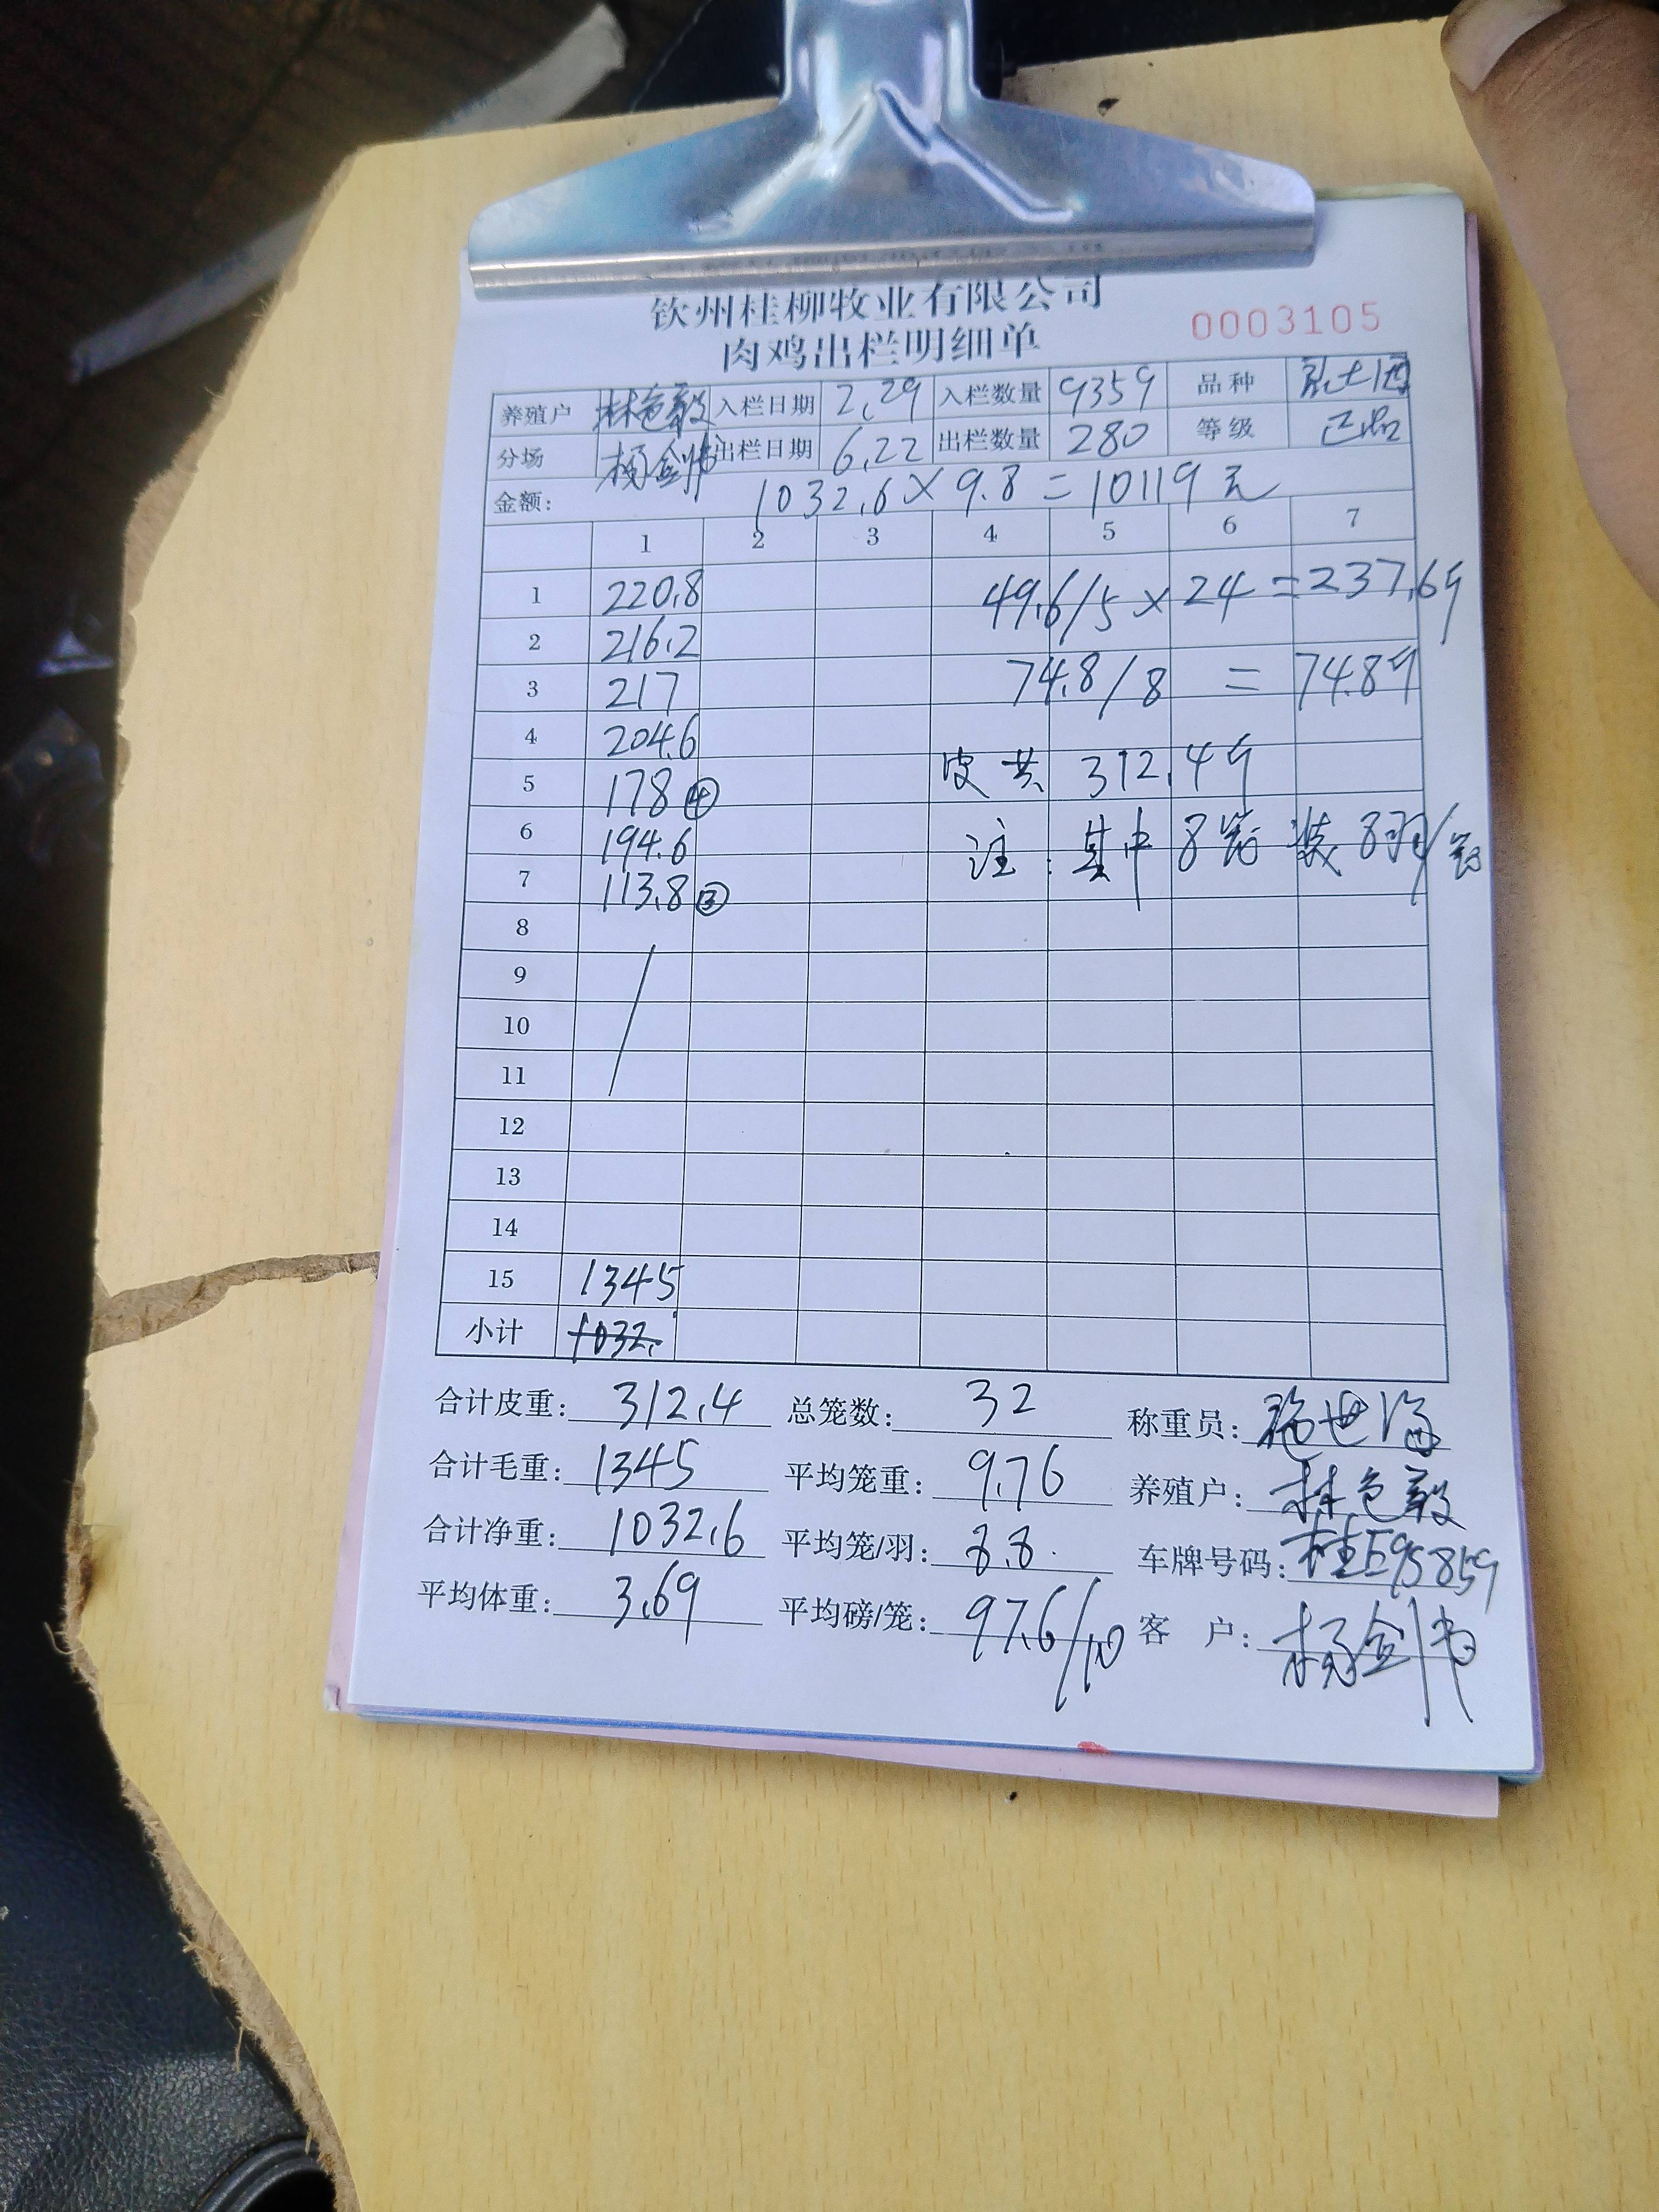 钦州桂柳牧业有限公司
肉鸡出栏明细单 0003105
养殖户 林色毅 入栏日期 2.29 入栏数量 9359 品种
分场 杨剑 出栏日期 6.22 出栏数量 280 等级 正品
金额: 1032.6×9.8=10119元
1 2 3 4 5 6 7
1 220.8 49.6/5×24=237.6斤
2 216.2
3 217 74.8/8 = 74.8斤
4 204.6
5 178④ 皮共 312.4斤
6 194.6
7 113.8③ 注:其中8笼 装8羽/笼
8
9
10
11
12
13
14
15 1345
小计 1032.
合计皮重: 312.4 总笼数: 32 称重员: 施世海
合计毛重: 1345 平均笼重: 9.76 养殖户: 林色毅
合计净重: 1032.6 平均笼/羽: 8.8. 车牌号码: 桂E95859
平均体重: 3.69 平均磅/笼: 97.6/10 客 户: 杨剑